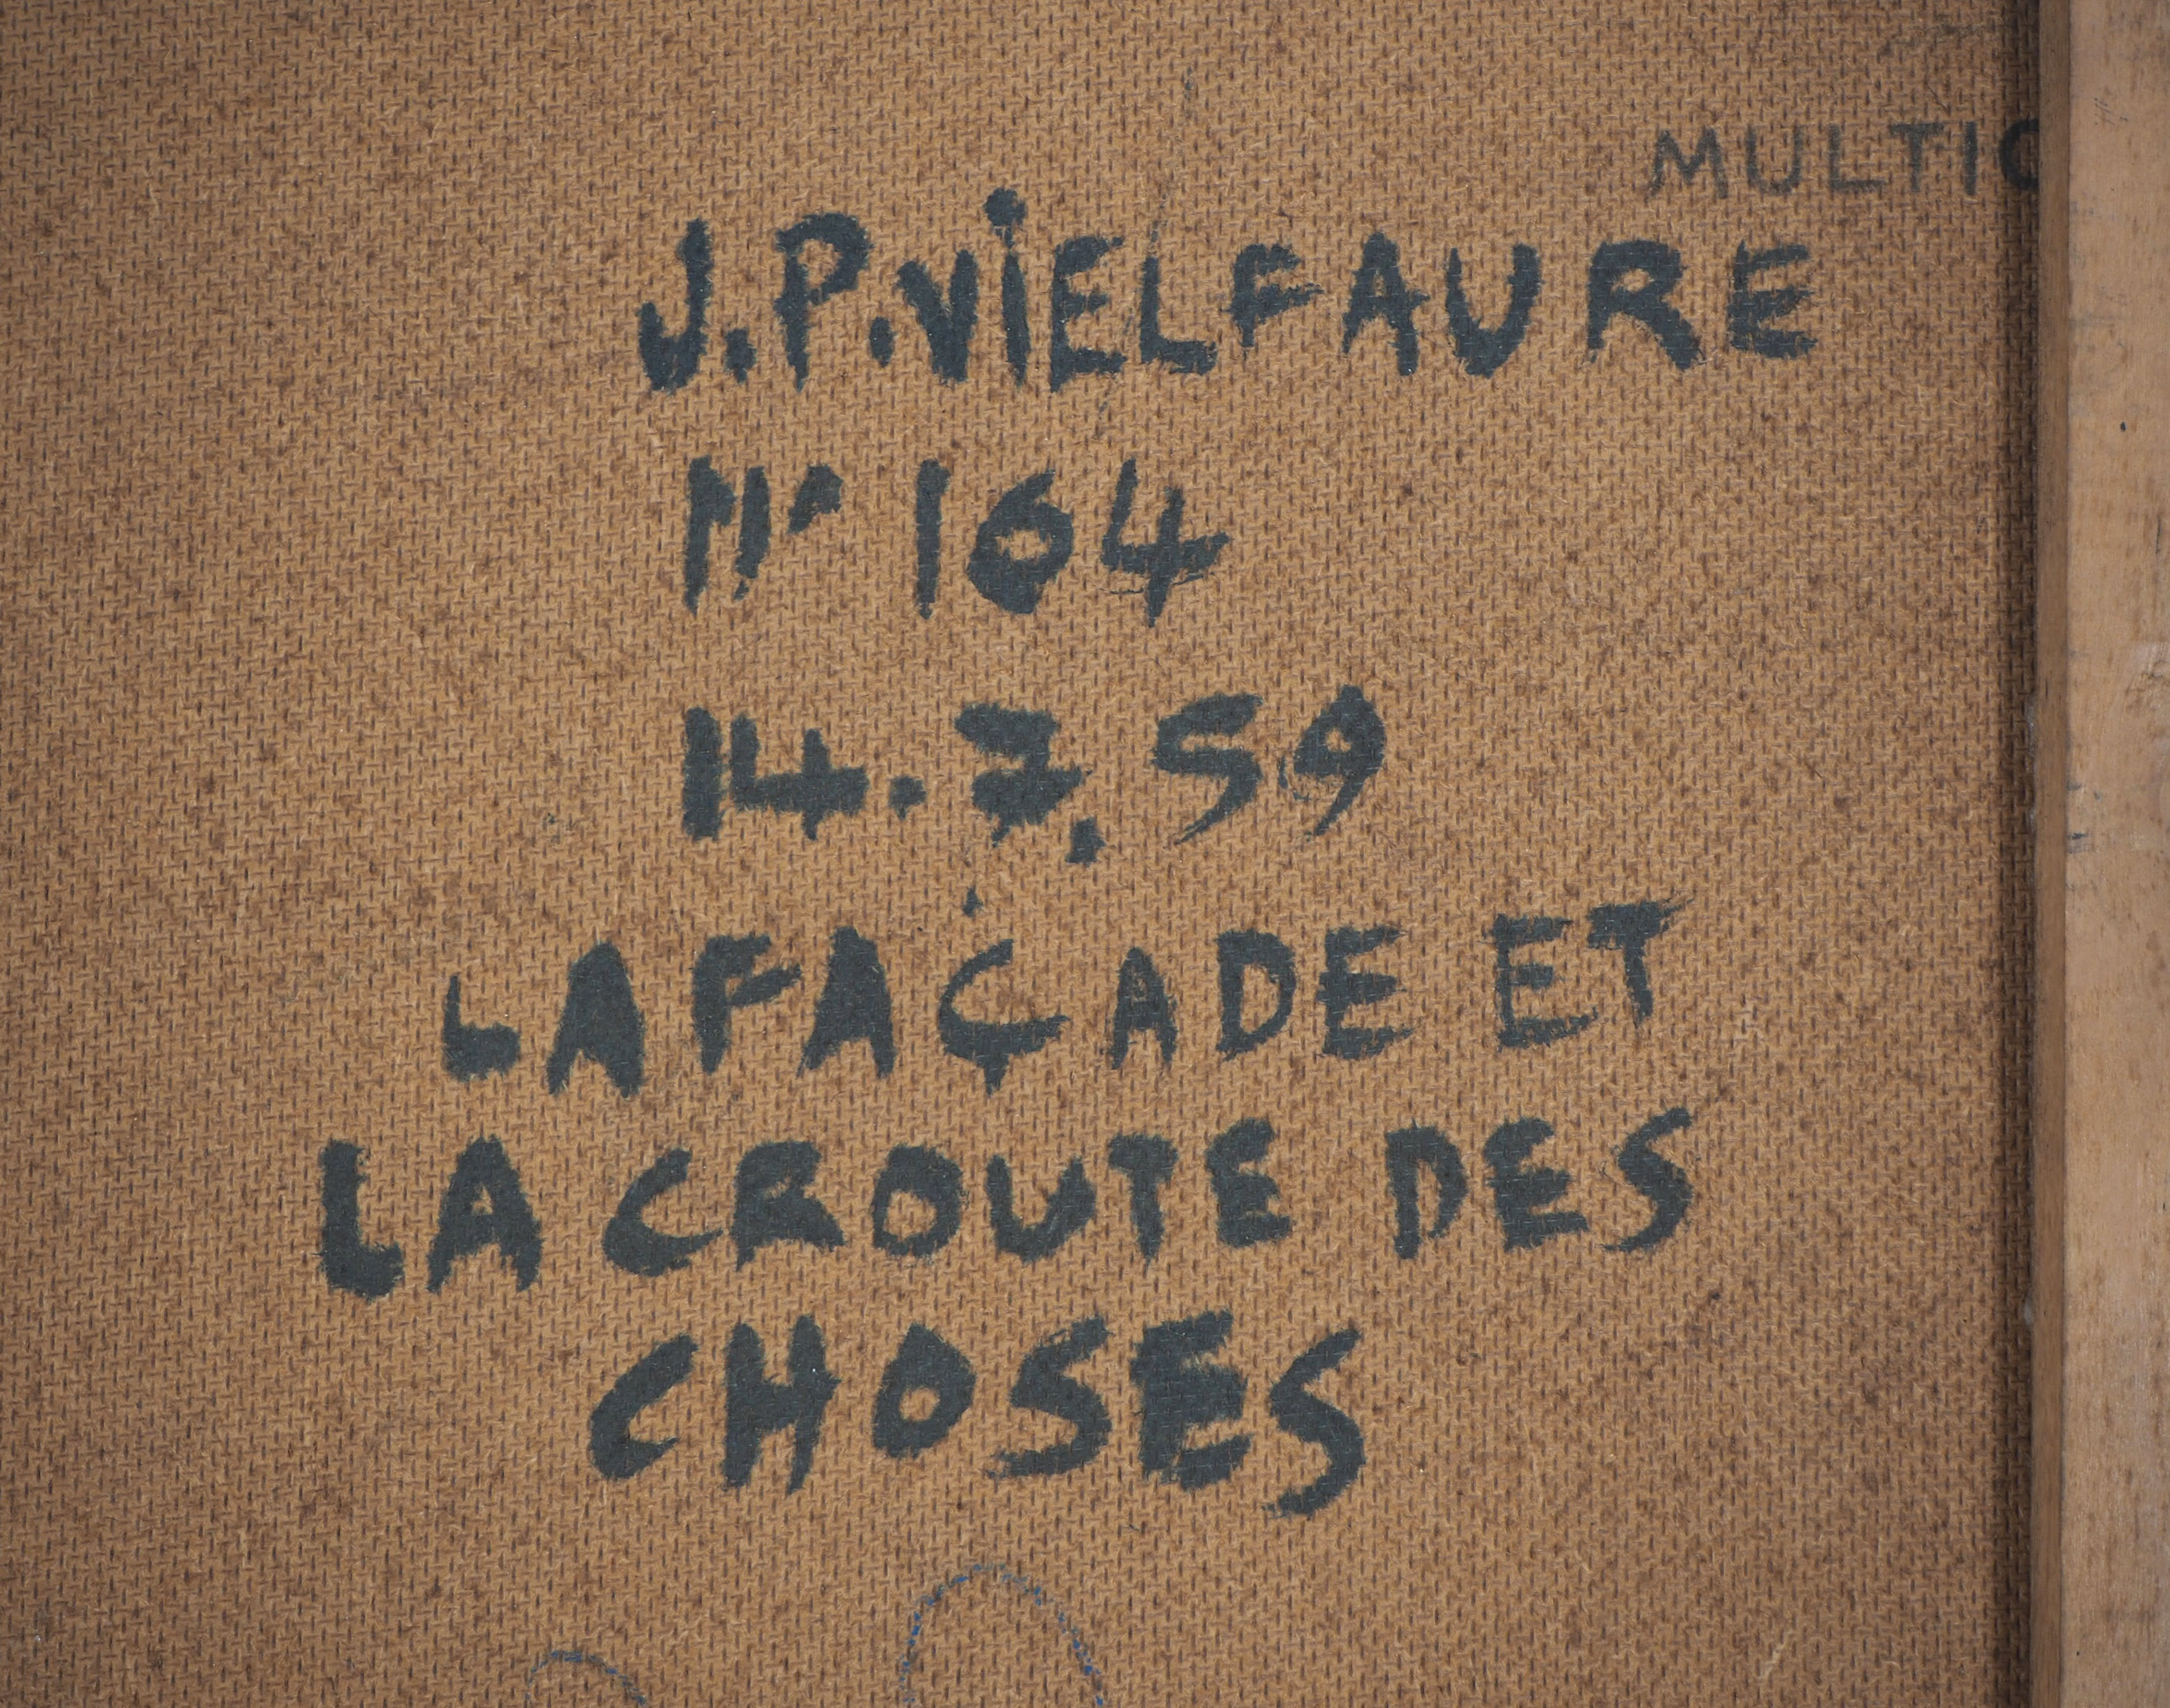 MULTIC
J.P.ViELFAURE
N° 164
14.7.59
LA FAÇADE ET
LA CROUTE DES
CHOSES